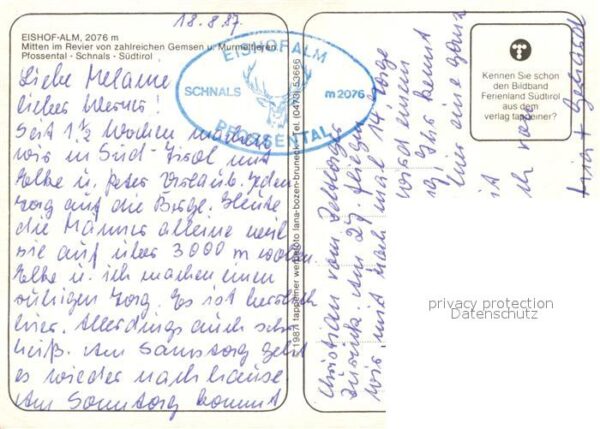 18.8.87
EISHOF-ALM, 2076 m
Mitten im Revier von zahlreichen Gemsen u. Murmeltieren
Pfossental - Schnals - Südtirol
EISHOFALM
SCHNALS
m 2076
PFOSSENTAL
Liebe Melanie
lieber Werner!
Seit 1½ Wochen machen
wir in Süd-Tirol mit
Elke u. Peter Urlaub. Jeden
Tag auf die Berge. Heute
die Männer alleine weil
sie auf über 3000 m wollen.
Elke u. ich machen einen
ruhigen Tag. Es ist herrlich
hier. Allerdings auch sehr
heiß. Am Samstag geht
es wieder nach hause
Am Sonntag kommt
Christian vom Zeltlager
zurück. Am 27. fliegen
wir mit nach mal 14 Tage
ist
Ihr
© 1987 tappeiner werbefoto lana-bozen-bruneck - Tel. (0473) 53666
Kennen Sie schon
den Bildband
Ferienland Südtirol
aus dem
verlag tappeiner?
privacy protection
Datenschutz